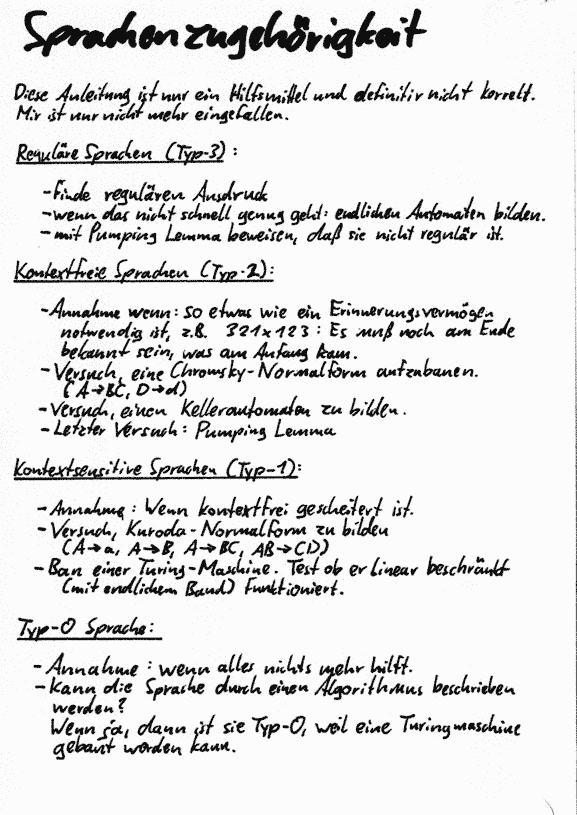 Sprachenzugehörigkeit
Diese Anleitung ist nur ein Hilfsmittel und definitiv nicht korrekt.
Mir ist nur nicht mehr eingefallen.
Reguläre Sprachen (Typ-3):
- Finde regulären Ausdruck
- wenn das nicht schnell genug geht: endlichen Automaten bilden.
- mit Pumping Lemma beweisen, daß sie nicht regulär ist.
Kontextfreie Sprachen (Typ-2):
- Annahme wenn: so etwas wie ein Erinnerungsvermögen
notwendig ist, z.B. 321x123: Es muß noch am Ende
bekannt sein, was am Anfang kam.
- Versuch, eine Chromsky-Normalform aufzubauen.
(A→BC, D→d)
- Versuch, einen Kellerautomaten zu bilden.
- Letzter Versuch: Pumping Lemma
Kontextsensitive Sprachen (Typ-1):
- Annahme: Wenn kontextfrei gescheitert ist.
- Versuch, Kuroda-Normalform zu bilden
(A→a, A→B, A→BC, AB→CD)
- Bau einer Turing-Maschine. Test ob er linear beschränkt
(mit endlichem Band) funktioniert.
Typ-0 Sprache:
- Annahme: wenn alles nichts mehr hilft.
- Kann die Sprache durch einen Algorithmus beschrieben
werden?
Wenn ja, dann ist sie Typ-0, weil eine Turingmaschine
gebaut werden kann.